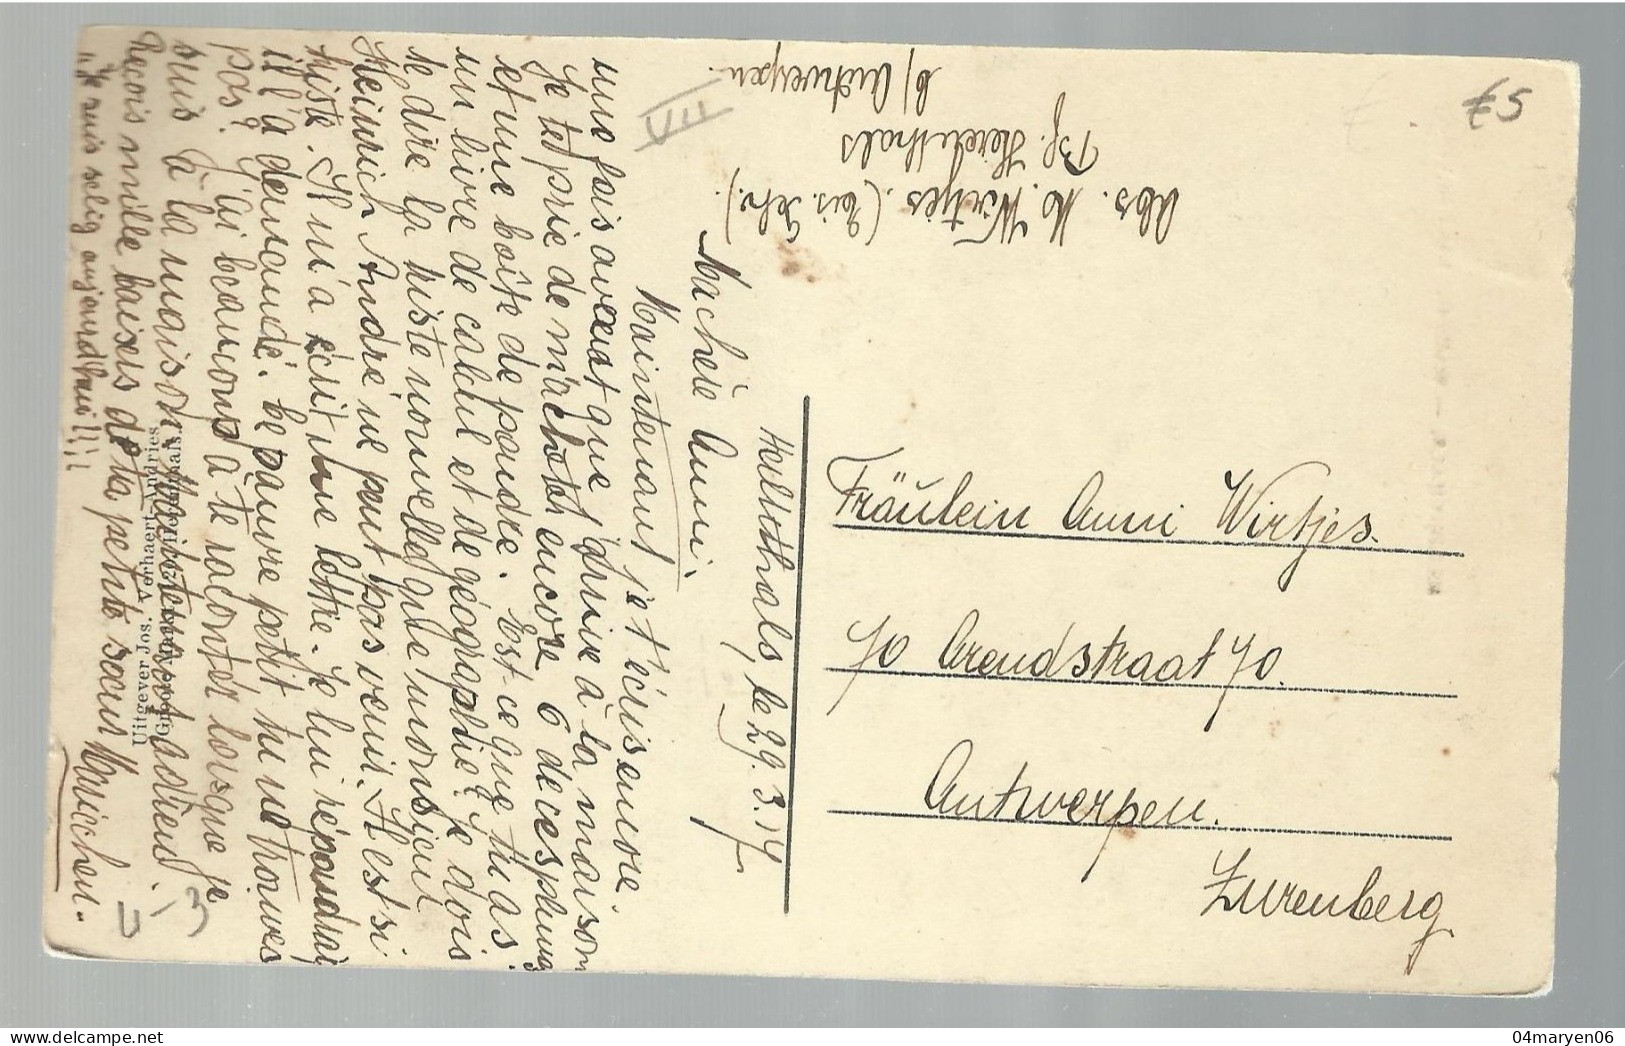 Herlethals, le 29. 3. 14
Ma chère Anni,
Maintenant je t'écris encore
une fois avant que j'arrive à la maison
Je te prie de m'acheter encore 6 de ces plumes
et une boîte de poudre. Est-ce que tu as
un livre de calcul et de géographie? Je dois
te dire la triste nouvelle que monsieur
Heinrich André ne peut pas venir. Il est si
triste. Il m'a écrit une lettre. Je lui répondrai
il l'a demandé. Le pauvre petit tu ne trouves
pas? J'ai beaucoup à te raconter lorsque je
suis à la maison. Maintenant adieu.
Reçois mille baisers de ta petite sœur Mariechen.
"Je suis selig aujourd'hui!!!
Uitgever Jos. Verhaert-Andries
Abs. M. Wirtjes. (Eis. Geb.)
Psf. Herelthals
b/Antwerpen.
VII
€5
Fräulein Anni Wirtjes.
70 Arendstraat 70.
Antwerpen.
Zurenberg
U-3
www.delcampe.net
04maryen06